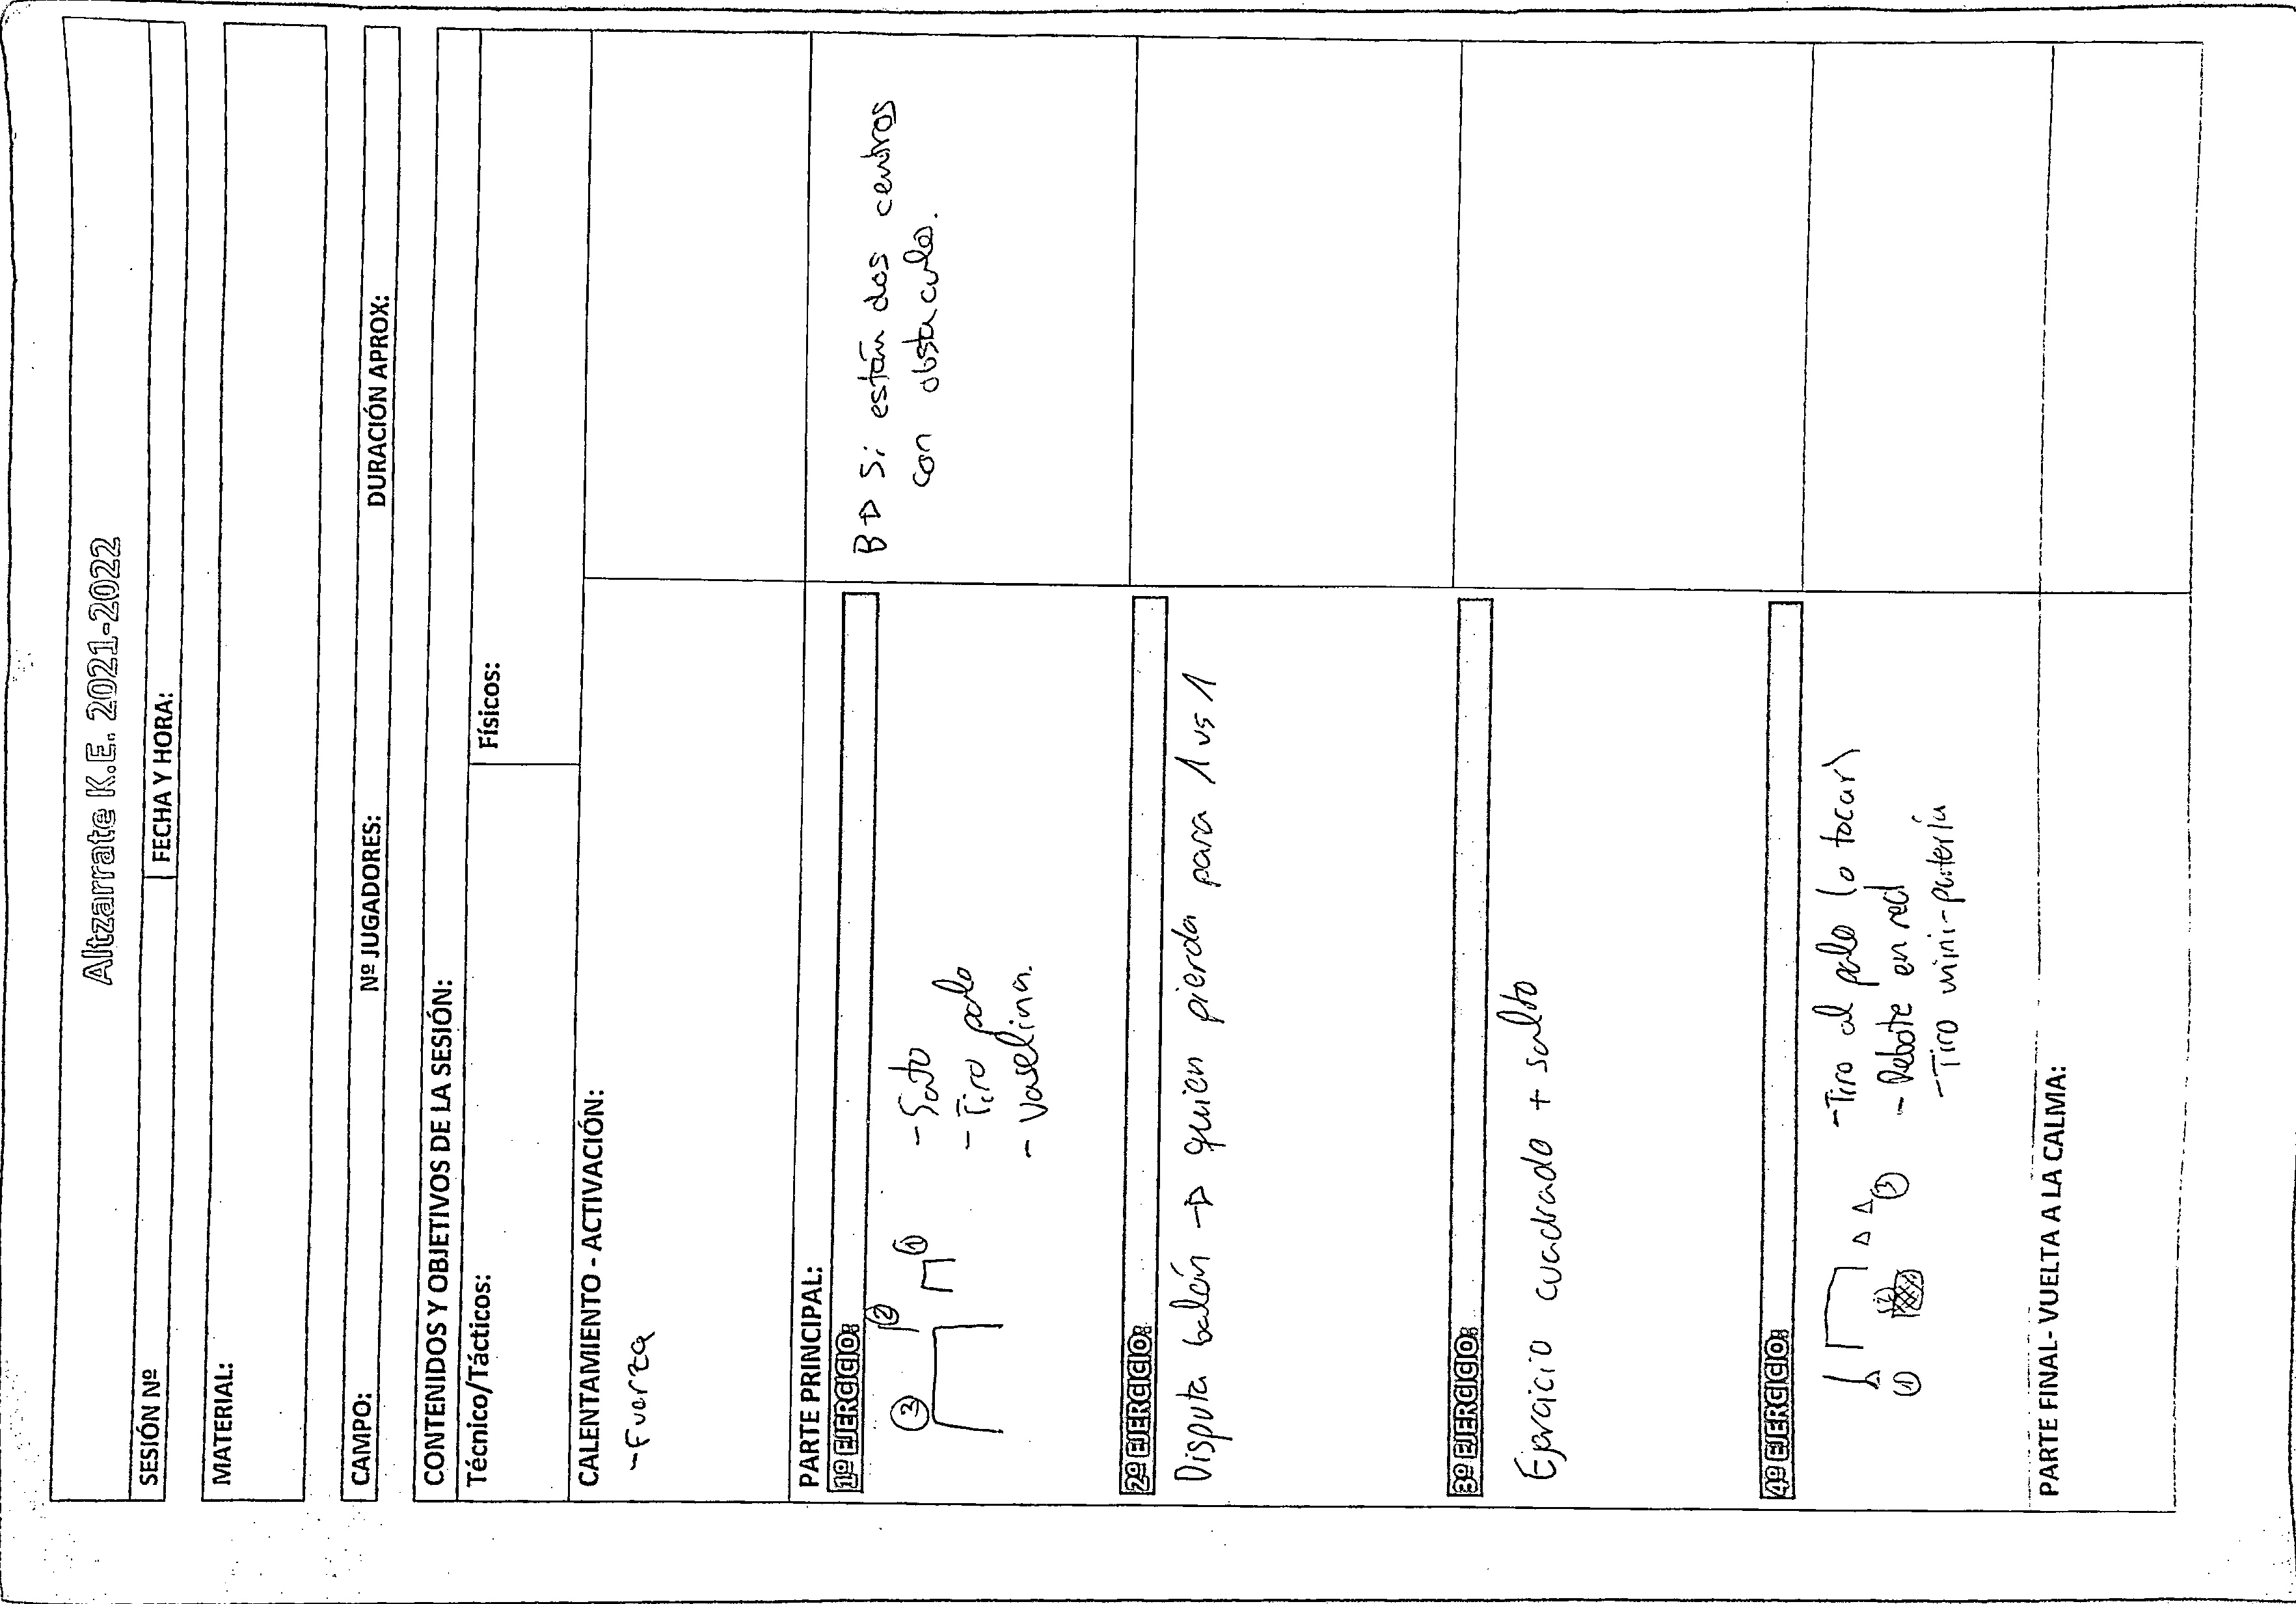 Altzarrate K.E. 2021-2022
SESIÓN Nº FECHA Y HORA:
MATERIAL:
CAMPO: Nº JUGADORES: DURACIÓN APROX:
CONTENIDOS Y OBJETIVOS DE LA SESIÓN:
Técnico/Tácticos: Físicos:
CALENTAMIENTO - ACTIVACIÓN:
- Fuerza
PARTE PRINCIPAL:
1º EJERCICIO:
③ ② ①
- Salto
- Tiro palo
- Vaselina.
B → Si están dos centros
con obstaculo.
2º EJERCICIO:
Disputa balón → quien pierda para 1 vs 1
3º EJERCICIO:
Ejercicio cuadrado + salto
4º EJERCICIO:
① ② ③
- Tiro al palo (o tocar)
- Rebote en red
- Tiro mini-portería
PARTE FINAL- VUELTA A LA CALMA: